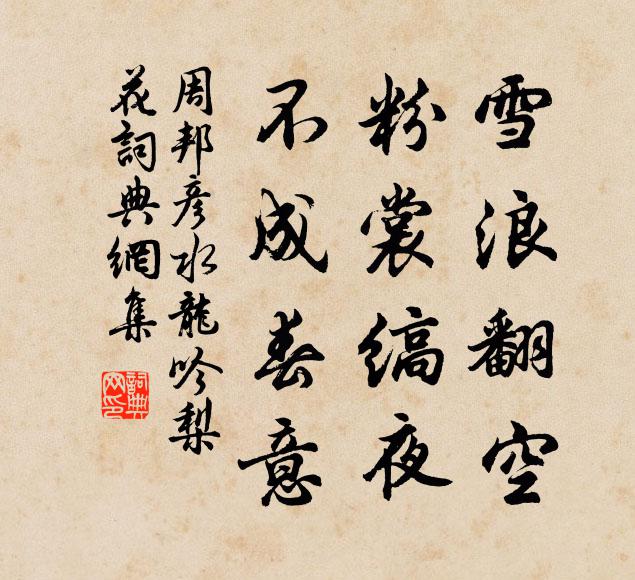 雪浪翻空
粉裳縞夜
不成春意
周邦彦水龍吟梨
花詞典網集
詞典
网印